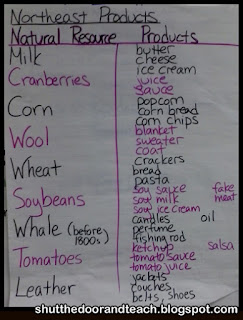 Northeast Products
Natural Resource Products
Milk butter
cheese
ice cream
Cranberries juice
sauce
Corn popcorn
corn bread
corn chips
Wool blanket
sweater
coat
Wheat crackers
bread
pasta
Soybeans soy sauce fake
soy milk meat
soy ice cream
Whale (before 1800s) candles oil
perfume
fishing rod
Tomatoes ketchup salsa
tomato sauce
tomato juice
Leather jackets
couches
belts, shoes
shutthedoorandteach.blogspot.com